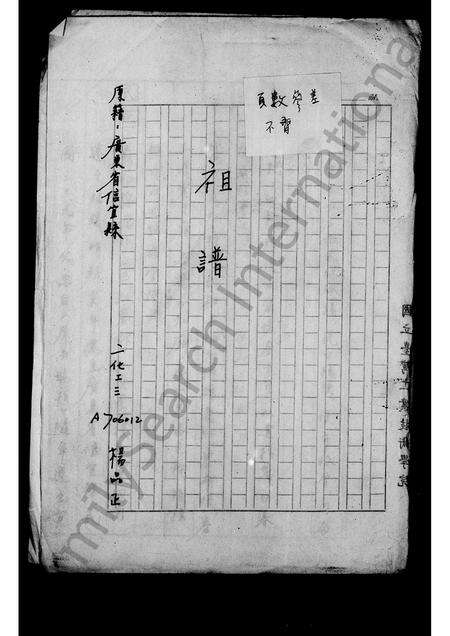 國立臺灣工業技術學院
頁數參差
不齊
祖譜
原籍：廣東省信宜縣
二化工三
A706012
楊品正
FamilySearch International